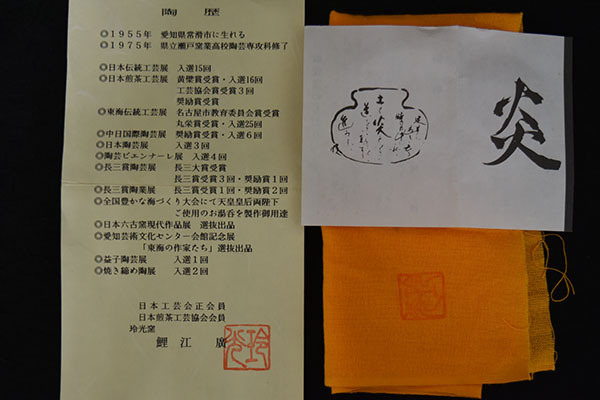 陶歴
◎1955年 愛知県常滑市に生れる
◎1975年 県立瀬戸窯業高校陶芸専攻科修了
◎日本伝統工芸展 入選15回
◎日本煎茶工芸展 黄檗賞受賞・入選16回
工芸協会賞受賞3回
奨励賞受賞
◎東海伝統工芸展 名古屋市教育委員会賞受賞
丸栄賞受賞・入選25回
◎中日国際陶芸展 奨励賞受賞・入選6回
◎日本陶芸展 入選3回
◎陶芸ビエンナーレ展 入選4回
◎長三賞陶芸展 長三大賞受賞
長三賞受賞3回・奨励賞1回
◎長三賞陶業展 長三賞受賞1回・奨励賞2回
◎全国豊かな海づくり大会にて天皇皇后両陛下
ご使用のお湯呑を製作御用達
◎日本六古窯現代作品展 選抜出品
◎愛知芸術文化センター会館記念展
「東海の作家たち」選抜出品
◎益子陶芸展 入選1回
◎焼き締め陶展 入選2回
日本工芸会正会員
日本煎茶工芸協会会員
玲光窯
鯉江廣
玲光
炎